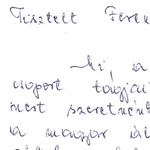 Tisztelt Feren
Mi, a
csoport tagjai
mert szeretnénk
a magyar